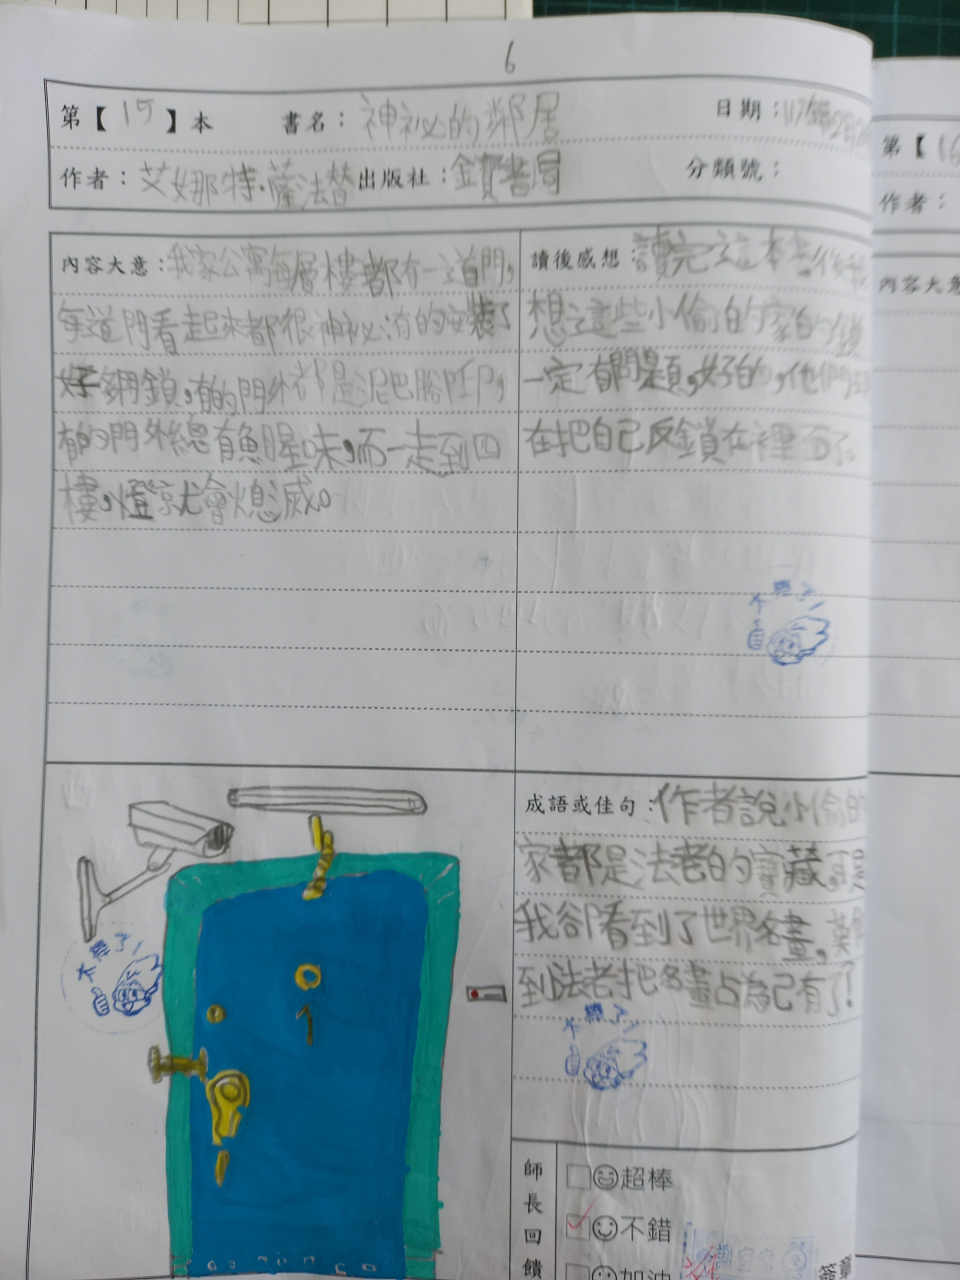 6
第【15】本 書名：神祕的鄰居 日期：112年2月2
作者：艾娜特·薩法替 出版社：金寶書局 分類號：
內容大意：我家公寓每層樓都有一道門，
每道門看起來都很神祕，有的安裝了
好多個鎖，有的門外都是泥巴腳印，
有的門外總有魚腥味，而一走到四
樓，燈就會熄滅。
讀後感想：讀完這本書後我
想這些小偷的家的鎖
一定有問題，好的，他們
在把自己反鎖在裡面了。
太棒了！
成語或佳句：作者說小偷的
家都是法老的寶藏，可是
我卻看到了世界名畫，
到法老把名畫占為己有了！
太棒了！
太棒了！
師長回饋
超棒
不錯
加油
第【16
作者：
內容大意